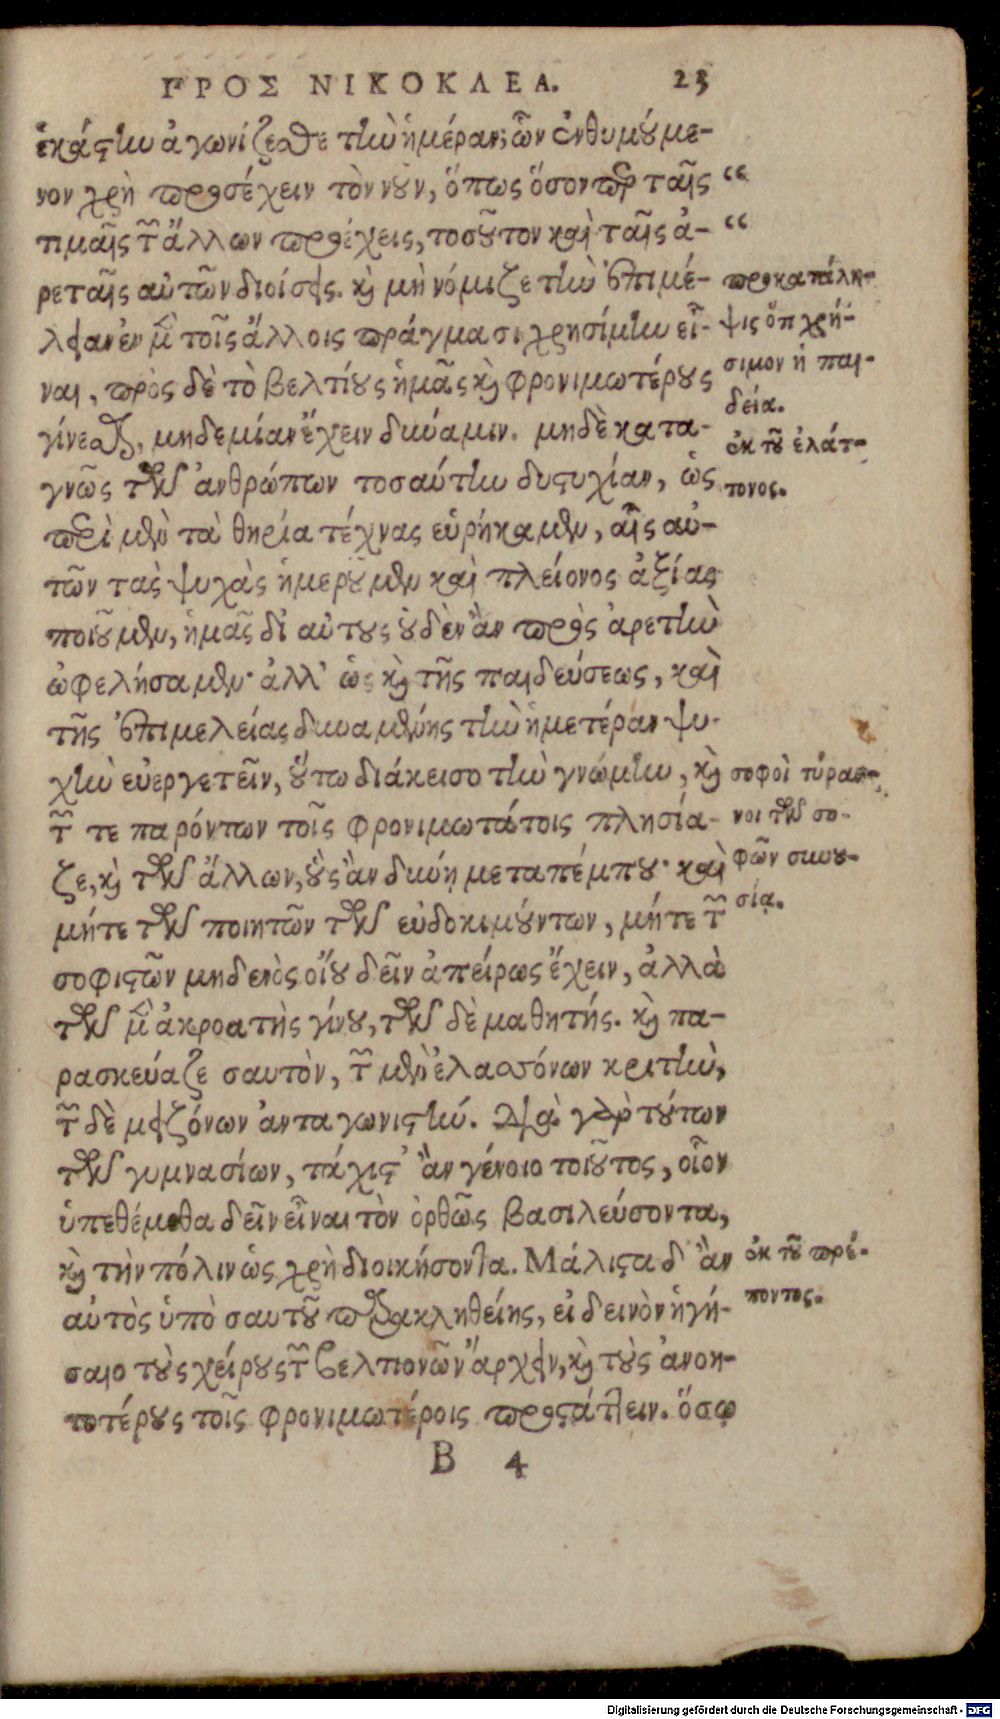 ΠΡΟΣ ΝΙΚΟΚΛΕΑ. 23
ἑκάστην ἀγωνίζεσθε τὴν ἡμέραν; ὧν ἐνθυμούμε-
νον χρὴ προσέχειν τὸν νοῦν, ὅπως ὅσον περ ταῖς “
τιμαῖς τῶν ἄλλων προέχεις, τοσοῦτον καὶ ταῖς ἀ- “
ρεταῖς αὐτῶν διοίσεις. καὶ μὴ νόμιζε τὴν ἐπιμέ-
λειαν ἐν μὲν τοῖς ἄλλοις πράγμασι χρησίμην εἶ-
ναι, πρὸς δὲ τὸ βελτίους ἡμᾶς καὶ φρονιμωτέρους
γίνεσθαι, μηδεμίαν ἔχειν δύναμιν. μηδὲ κατα-
γνῶς τῶν ἀνθρώπων τοσαύτην δυστυχίαν, ὡς
περὶ μὲν τὰ θηρία τέχνας εὑρήκαμεν, αἷς αὐ-
τῶν τὰς ψυχὰς ἡμεροῦμεν καὶ πλείονος ἀξίας
ποιοῦμεν, ἡμᾶς δ' αὐτοὺς οὐδὲν ἂν πρὸς ἀρετὴν
ὠφελήσαμεν· ἀλλ' ὡς καὶ τῆς παιδεύσεως, καὶ
τῆς ἐπιμελείας δυναμένης τὴν ἡμετέραν ψυ-
χὴν εὐεργετεῖν, οὕτω διάκεισο τὴν γνώμην, καὶ
τῶν τε παρόντων τοῖς φρονιμωτάτοις πλησία-
ζε, καὶ τῶν ἄλλων, οὓς ἂν δύνῃ μεταπέμπου· καὶ
μήτε τῶν ποιητῶν τῶν εὐδοκιμούντων, μήτε τῶν
σοφιστῶν μηδενὸς οἴου δεῖν ἀπείρως ἔχειν, ἀλλὰ
τῶν μὲν ἀκροατὴς γίνου, τῶν δὲ μαθητής. καὶ πα-
ρασκεύαζε σαυτὸν, τῶν μὲν ἐλασσόνων κριτὴν,
τῶν δὲ μειζόνων ἀνταγωνιστήν. Διὰ γὰρ τούτων
τῶν γυμνασίων, τάχιστ' ἂν γένοιο τοιοῦτος, οἷον
ὑπεθέμεθα δεῖν εἶναι τὸν ὀρθῶς βασιλεύσοντα,
καὶ τὴν πόλιν ὡς χρὴ διοικήσοντα. Μάλιστα δ' ἂν
αὐτὸς ὑπὸ σαυτοῦ παρακληθείης, εἰ δεινὸν ἡγή-
σαιο τοὺς χείρους τῶν βελτιονῶν ἄρχειν, καὶ τοὺς ἀνοη-
τοτέρους τοῖς φρονιμωτέροις προστάττειν. ὅσῳ
B 4
προκατάλη-
ψις ὅτι χρή-
σιμον ἡ παι-
δεία.
ἐκ τοῦ ἐλάτ-
τονος.
σοφοὶ τύραν-
νοι τῶν σο-
φῶν συνου-
σίᾳ.
ἐκ τοῦ πρέ-
ποντος.
Digitalisierung gefördert durch die Deutsche Forschungsgemeinschaft - DFG